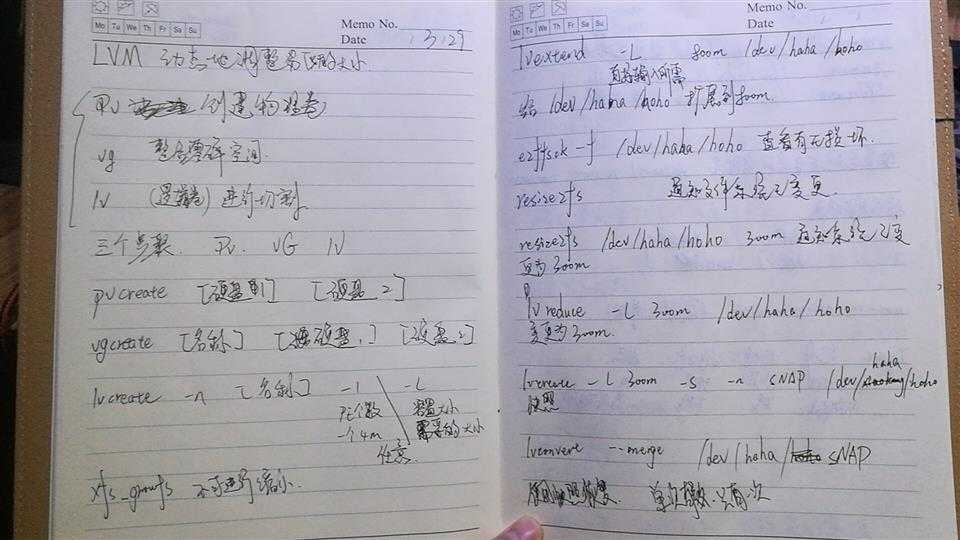 Mo Tu We Th Fr Sa Su
Memo No.
Date 3.29
LVM 动态地调整易区的大小
PV 创建物理卷
vg 整合零碎空间.
lv (逻辑卷) 进行切割
三个步骤. PV. VG lV
pvcreate [硬盘1] [硬盘2]
vgcreate [名称] [硬盘1] [硬盘2]
lvcreate -n [名称] -l \ -L
PE个数 容量大小
一个4m 需要的大小
任意.
xfs_growfs 不可进行缩小.
Mo Tu We Th Fr Sa Su
Memo No.
Date
lvextend -L 800m /dev/haha/hoho
直接输入所需
给 /dev/haha/hoho 扩展到800m.
e2ffsck -f /dev/haha/hoho 查看有无损坏.
resize2fs 通知文件系统已变更.
resize2fs /dev/haha/hoho 300m 通知系统已变
更为300m
lvreduce -L 300m /dev/haha/hoho
变更为300m.
lvcreate -L 300m -s -n SNAP /dev/haha/hoho
快照
lvconvere --merge /dev/haha/SNAP
快照恢复. 只有次